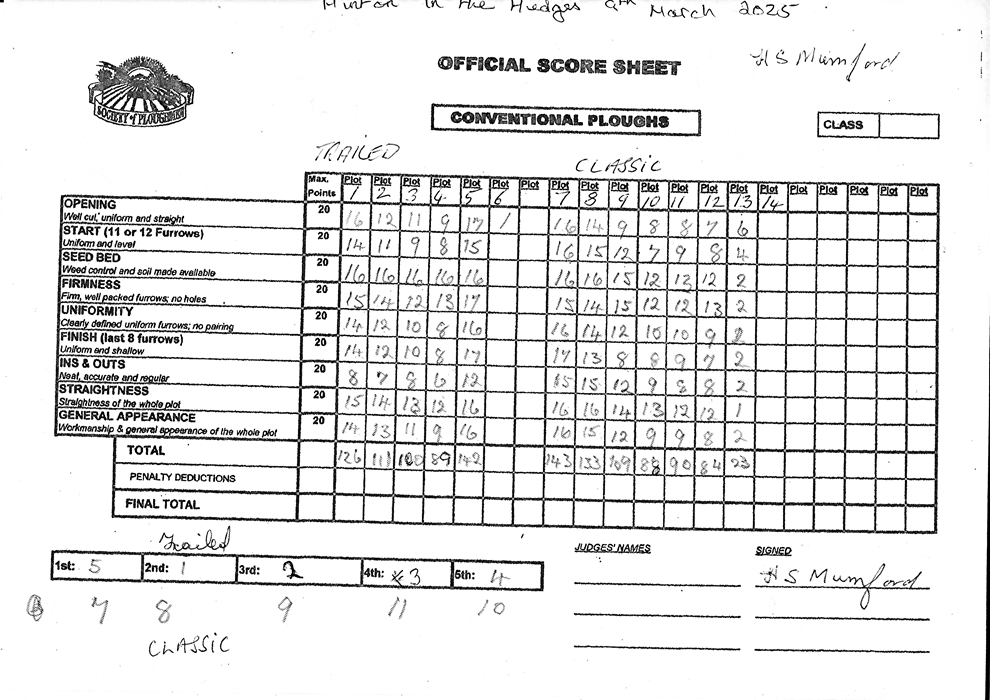 Minton in the Hedges 9th March 2025
H S Mumford
OFFICIAL SCORE SHEET
SOCIETY of PLOUGHMEN
CONVENTIONAL PLOUGHS
CLASS
TRAILED CLASSIC
Max. Points Plot 1 Plot 2 Plot 3 Plot 4 Plot 5 Plot 6 Plot Plot 7 Plot 8 Plot 9 Plot 10 Plot 11 Plot 12 Plot 13 Plot 14 Plot Plot Plot Plot Plot
OPENING 20 16 12 11 9 17 / 16 14 9 8 8 7 6
Well cut, uniform and straight
START (11 or 12 Furrows) 20 14 11 9 8 15 16 15 12 7 9 8 4
Uniform and level
SEED BED 20 16 16 16 16 16 16 16 15 12 13 12 2
Weed control and soil made available
FIRMNESS 20 15 14 12 13 17 15 14 15 12 12 13 2
Firm, well packed furrows; no holes
UNIFORMITY 20 14 12 10 8 16 16 14 12 10 10 9 2
Clearly defined uniform furrows; no pairing
FINISH (last 8 furrows) 20 14 12 10 8 17 17 13 8 8 9 7 2
Uniform and shallow
INS & OUTS 20 8 7 8 6 12 15 15 12 9 8 8 2
Neat, accurate and regular
STRAIGHTNESS 20 15 14 13 12 16 16 16 14 13 12 12 1
Straightness of the whole plot
GENERAL APPEARANCE 20 14 13 11 9 16 16 15 12 9 9 8 2
Workmanship & general appearance of the whole plot
TOTAL 126 111 100 89 142 143 133 109 88 90 84 23
PENALTY DEDUCTIONS
FINAL TOTAL
Trailed
1st: 5 2nd: 1 3rd: 2 4th: 3 5th: 4
7 8 9 11 10
CLASSIC
JUDGES' NAMES SIGNED
H S Mumford